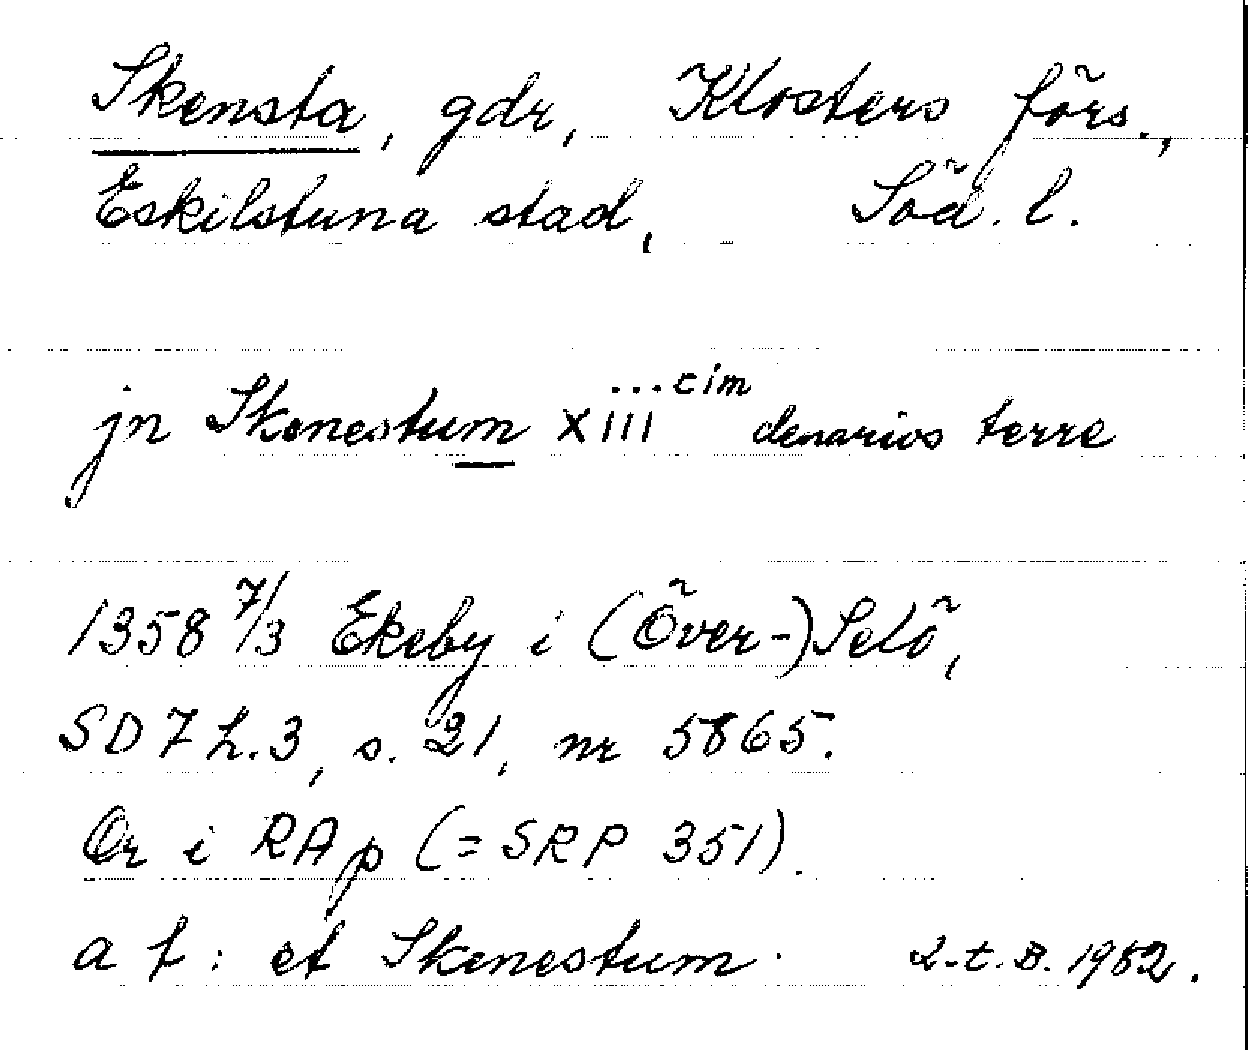 Skensta, gdr, Klosters förs.,
Eskilstuna stad, Söd. l.
jn Skenestum XIII ...cim denarios terre
1358 7/3 Ekeby i (Över-)Selö,
SD 7 h. 3, s. 21, nr 5865.
Or i RAp (= SRP 351).
a t : et Skenestum. L-t. B. 1952.